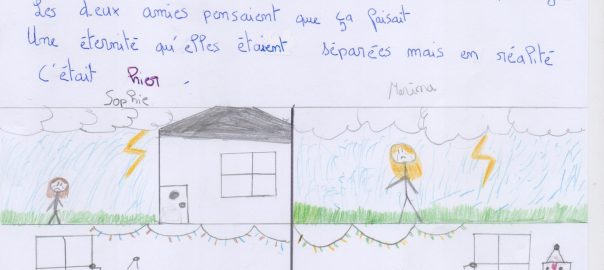 Les deux amies pensaient que ça faisait
Une éternité qu'elles étaient séparées mais en réalité
C'était hier.
Sophie